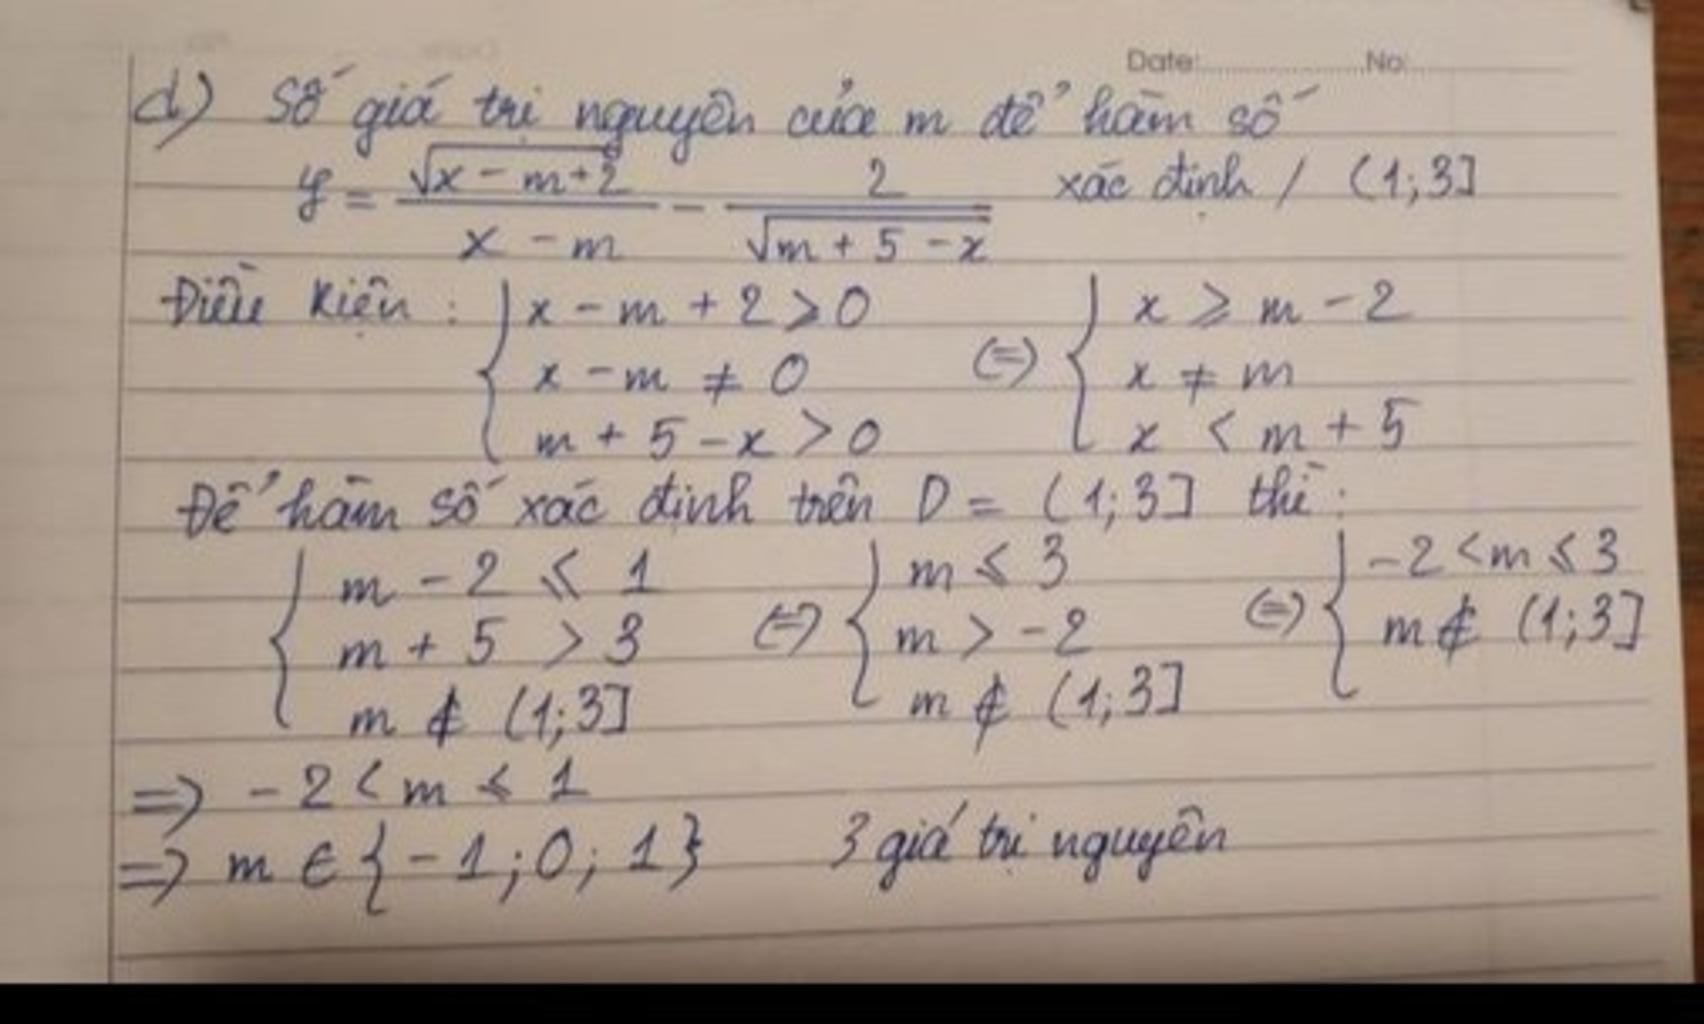 Date: No:
d) Số giá trị nguyên của m để hàm số
y = √(x - m + 2) / (x - m) - 2 / √(m + 5 - x) xác định / (1;3]
Điều kiện : { x - m + 2 ⩾ 0 (=) { x ⩾ m - 2
x - m ≠ 0 x ≠ m
m + 5 - x > 0 x < m + 5
Để hàm số xác định trên D = (1;3] thì :
{ m - 2 ⩽ 1 (=) { m ⩽ 3 (=) { -2 < m ⩽ 3
m + 5 > 3 m > -2 m ∉ (1;3]
m ∉ (1;3] m ∉ (1;3]
=> -2 < m ⩽ 1
=> m ∈ {-1; 0; 1} 3 giá trị nguyên